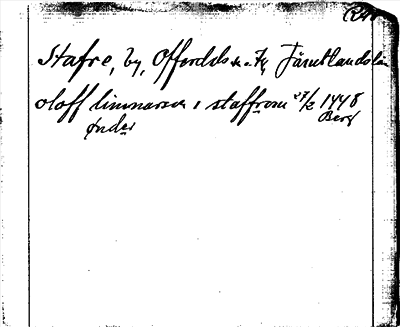 Stafre, by, Offerdals s:n o. ty, Jämtlands lä
oloff linnarson i staffrom 27/2 1448
ønder Berg